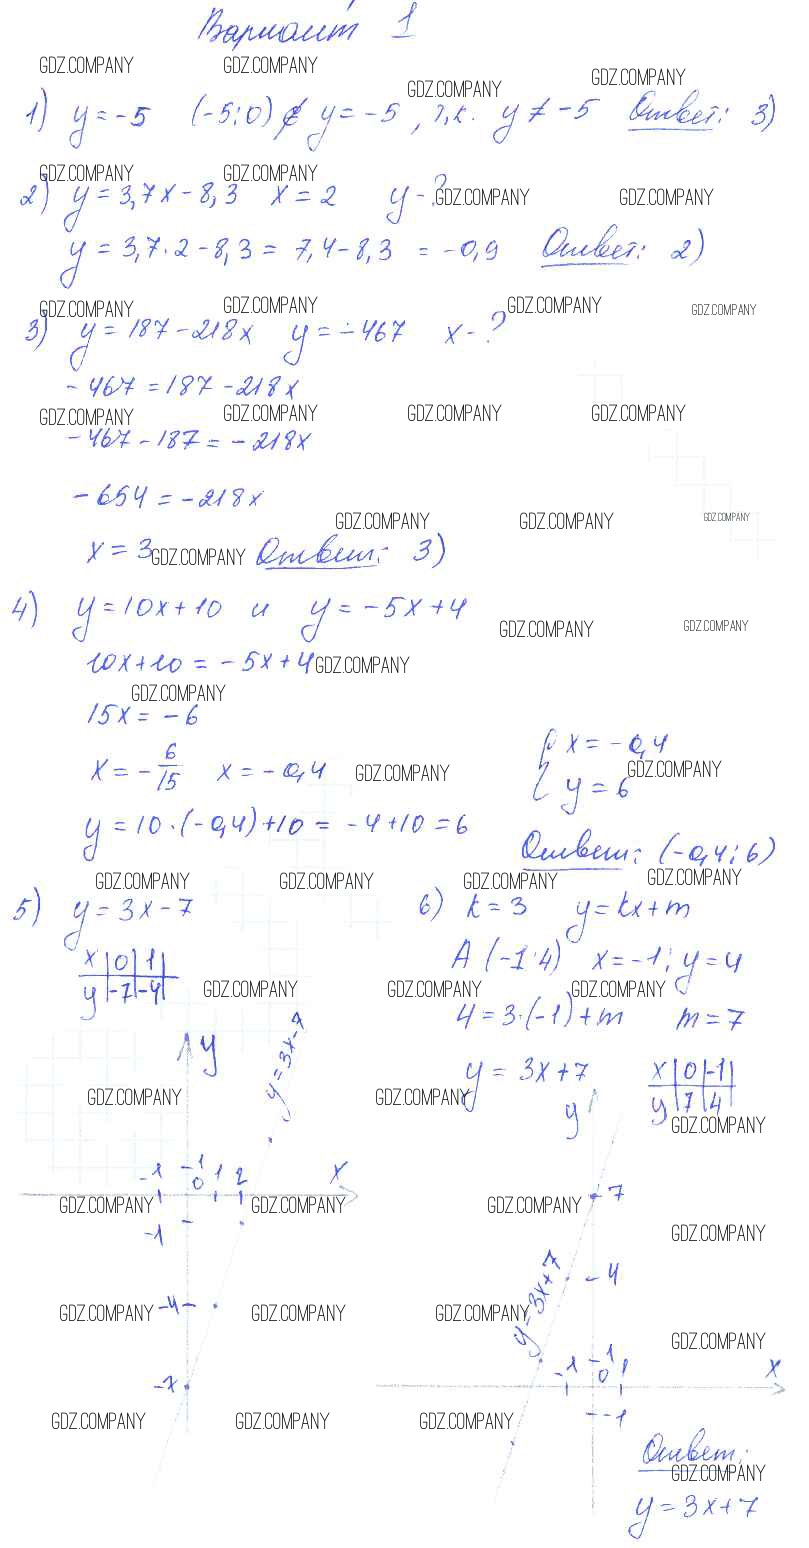 Вариант 1
GDZ.COMPANY GDZ.COMPANY GDZ.COMPANY GDZ.COMPANY
1) y = -5 (-5; 0) ∉ y = -5, т.к. y ≠ -5 Ответ: 3)
GDZ.COMPANY GDZ.COMPANY GDZ.COMPANY GDZ.COMPANY
2) y = 3,7x - 8,3 x = 2 y - ?
y = 3,7 · 2 - 8,3 = 7,4 - 8,3 = -0,9 Ответ: 2)
GDZ.COMPANY GDZ.COMPANY GDZ.COMPANY GDZ.COMPANY
3) y = 187 - 218x y = -467 x - ?
-467 = 187 - 218x
GDZ.COMPANY GDZ.COMPANY GDZ.COMPANY GDZ.COMPANY
-467 - 187 = -218x
-654 = -218x
GDZ.COMPANY GDZ.COMPANY GDZ.COMPANY
x = 3 GDZ.COMPANY Ответ: 3)
4) y = 10x + 10 и y = -5x + 4
GDZ.COMPANY GDZ.COMPANY
10x + 10 = -5x + 4 GDZ.COMPANY
GDZ.COMPANY
15x = -6
x = -6/15 x = -0,4 GDZ.COMPANY { x = -0,4
y = 6 GDZ.COMPANY
y = 10 · (-0,4) + 10 = -4 + 10 = 6
Ответ: (-0,4; 6)
GDZ.COMPANY GDZ.COMPANY GDZ.COMPANY GDZ.COMPANY
5) y = 3x - 7
x | 0 | 1
y | -7 | -4
GDZ.COMPANY GDZ.COMPANY GDZ.COMPANY
6) k = 3 y = kx + m
A (-1; 4) x = -1; y = 4
4 = 3 · (-1) + m m = 7
y = 3x + 7
x | 0 | -1
y | 7 | 4
GDZ.COMPANY GDZ.COMPANY GDZ.COMPANY
y
y = 3x - 7
-1 1 0 1 2 x
GDZ.COMPANY GDZ.COMPANY GDZ.COMPANY GDZ.COMPANY
-1
-4
GDZ.COMPANY GDZ.COMPANY GDZ.COMPANY GDZ.COMPANY
-7
y
7
4
y = 3x + 7
-1 1 0 1 x
-1
GDZ.COMPANY GDZ.COMPANY GDZ.COMPANY
Ответ:
GDZ.COMPANY
y = 3x + 7